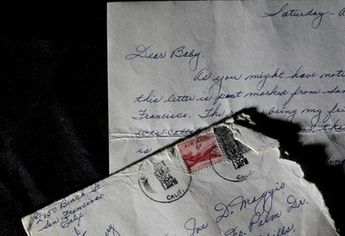 Saturday - A
Dear Baby,
As you might have noti
this letter is post marked from San
Francisco. The being my fri
was
is the
AIR MAIL
6¢
CALIF.
CALIF.
2150 Beach St
San Francisco
Calif
Joe D. Maggio
Palm Dr.
Hills,